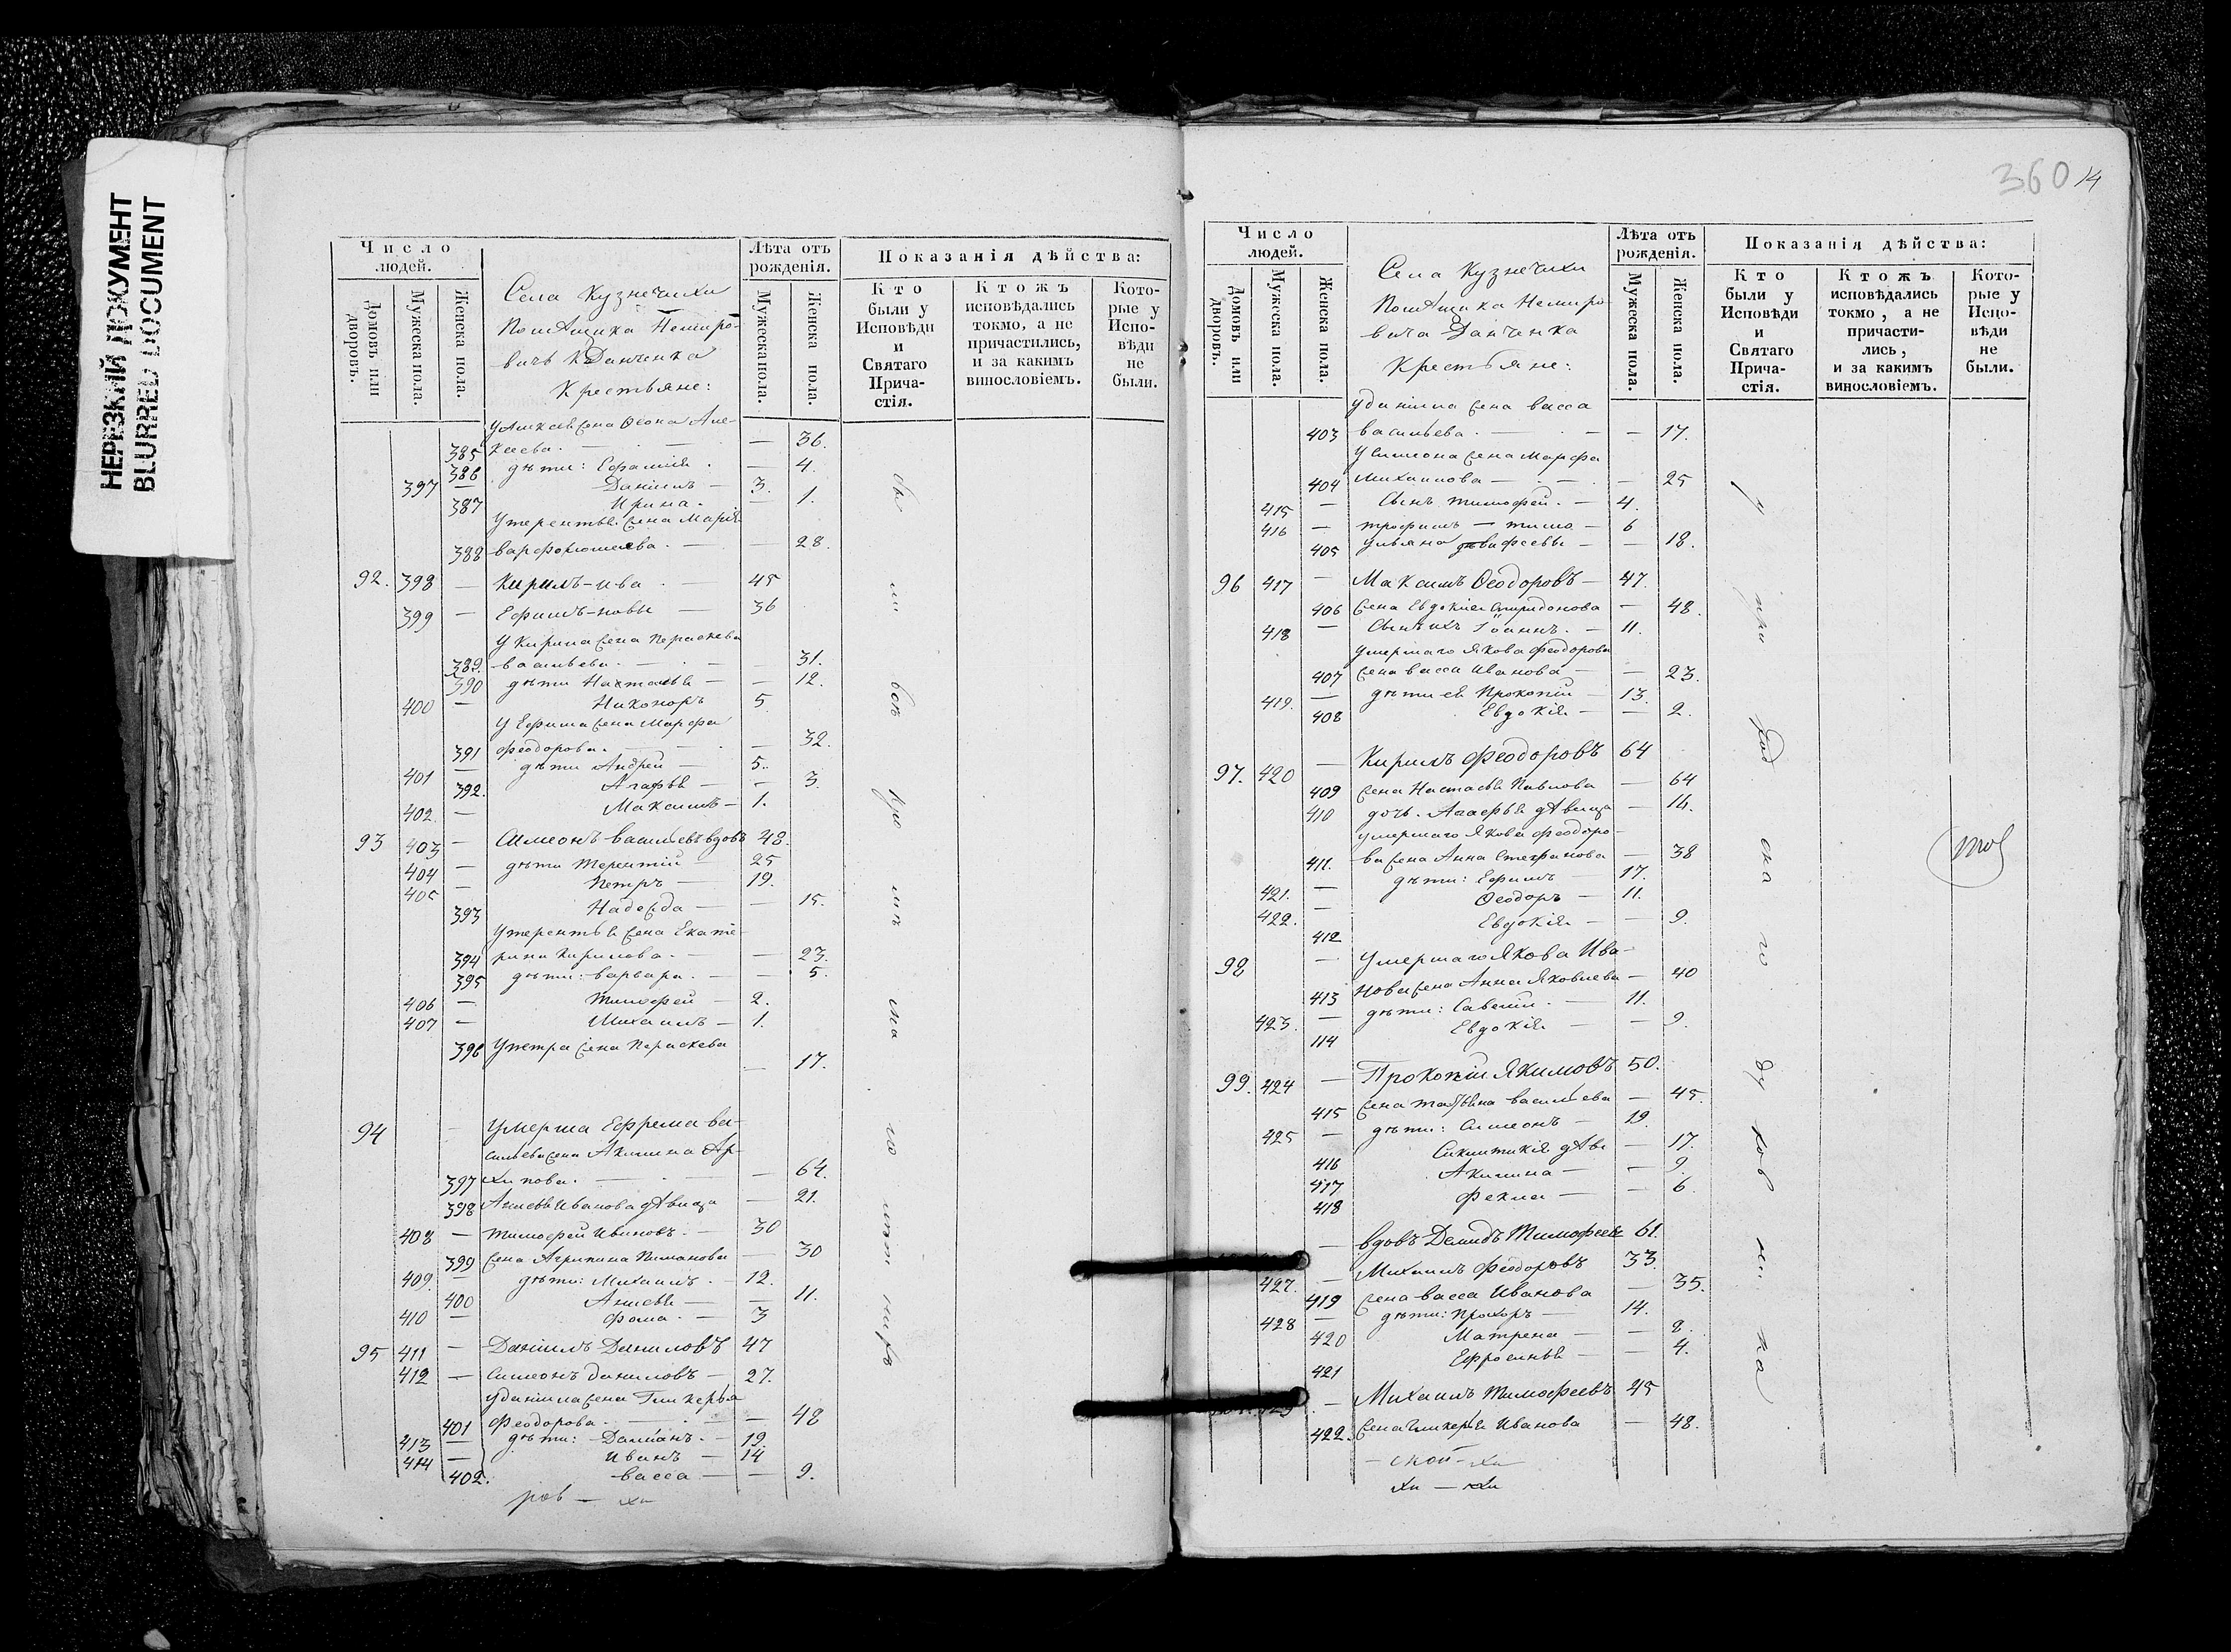 НЕРЕЗКИЙ ДОКУМЕНТ
BLURRED DOCUMENT
Число людей.
Домовъ или дворовъ.
Мужеска пола.
Женска пола.
Села Кузнечихи
Помѣщика Немиро-
вичъ Данченка
Крестьяне:
Лѣта отъ рожденія.
Мужеска пола.
Женска пола.
Показанія дѣйства:
Кто были у Исповѣди и Святаго Прича-стія.
Ктожъ исповѣдались токмо, а не причастились, и за какимъ винословіемъ.
Кото-рые у Испо-вѣди не были.
385 Кеева. — 36.
386 дѣти: Ефимія — 4.
397 — Даніилъ — 3.
387 Ирина. — 1.
Утерентія жена Марія
388 Варфоломеева. — 28.
92. 398 — Кирилъ-ива — 45
399 — Ефимъ-новы — 36
У Кирила жена Параскева
389. Васильева. — 31.
390 дѣти Наталья — 12.
400 — Никоноръ 5
У Ефима жена Марфа
391 Феодорова. — 32.
401 — дѣти Андрей — 5.
392. Агафья — 3.
402. — Максимъ — 1.
93 403 — Симеонъ Васильевъ вдовъ 48.
404 — дѣти Терентій — 25
405 — Петръ — 19.
393 Надежда — 15.
Утерентія жена Екате-
394 рина Кирилова. — 23.
395 дѣти: Варвара. — 5.
406 — Тимофей — 2.
407 — Михаилъ — 1.
396 Упетра жена Параскева — 17.
94 — Умерша Ефрема Ва-
сильева жена Акилина Ар-
397 хипова. — 64.
398 Иванова дѣвица — 21.
408 — Тимофей Ивановъ. — 30
399 жена Агрипина — 30
409. — дѣти: Михаилъ. — 12.
400 — 11.
410 — Фома. — 3
95 411 — Даніилъ Даниловъ 47
412 — Симеонъ Даниловъ — 27.
Уданіила жена Гликерья
401 Феодорова. — 48
413 — дѣти: Даміанъ. — 19.
414 — Иванъ — 14
402. Васса — 9.
ров — хи
360 14
Число людей.
Домовъ или дворовъ.
Мужеска пола.
Женска пола.
Села Кузнечихи
Помѣщика Немиро-
вича Данченка
Крестьяне:
Лѣта отъ рожденія.
Мужеска пола.
Женска пола.
Показанія дѣйства:
Кто были у Исповѣди и Святаго Прича-стія.
Ктожъ исповѣдались токмо, а не причасти-лись, и за какимъ винословіемъ.
Кото-рые у Испо-вѣди не были.
Уданіила жена Васса
403 Васильева. — 17.
Усимеона жена Марфа
404 Михаилова — 25
415 — Сынъ Тимофей. — 4.
416 — Трофимъ — тимо — 6
405 Ульяна феевы — 18.
96 417 — Максимъ Ѳеодоровъ — 47.
406 жена Евдокія Спиридонова — 48.
418 — Сынъ ихъ Іоаннъ. — 11.
Умершаго Якова Феодорова
407 жена Васса Иванова — 23.
419. — дѣти ея Прокопій — 13.
408 Евдокія — 2.
97. 420 — Кирилъ Феодоровъ 64
409 жена Настасья Павлова — 64
410 дочь. Агафья дѣвица —
Умершаго Якова Феодоро-
411. ва жена Анна Стефанова — 38
421. — дѣти: Ефимъ — 17.
422. — Ѳеодоръ — 11.
412 Евдокія — 9.
98 — Умершаго Якова Ива-
413 нова жена Анна Яковлева — 40
423. — дѣти: Савелій. — 11.
114 Евдокія — 9.
99. 424 — Прокопій Якимовъ 50.
415 жена Татьяна Васильева — 45.
425 — дѣти: Симеонъ — 19.
416 Сикитикія дѣви — 17.
417 Акилина — 9.
418 Фекла — 6.
— Вдовъ Демидъ Тимофеевъ 61.
427. — Михаилъ Феодоровъ 33.
419 жена Васса Иванова — 35.
428 — дѣти: Прохоръ — 14.
420 Матрена — 8.
421 Ефросинья — 4.
— Михаилъ Тимофеевъ 45
422. жена Гликерья Иванова — 48.
— ской — хи
хи — хи